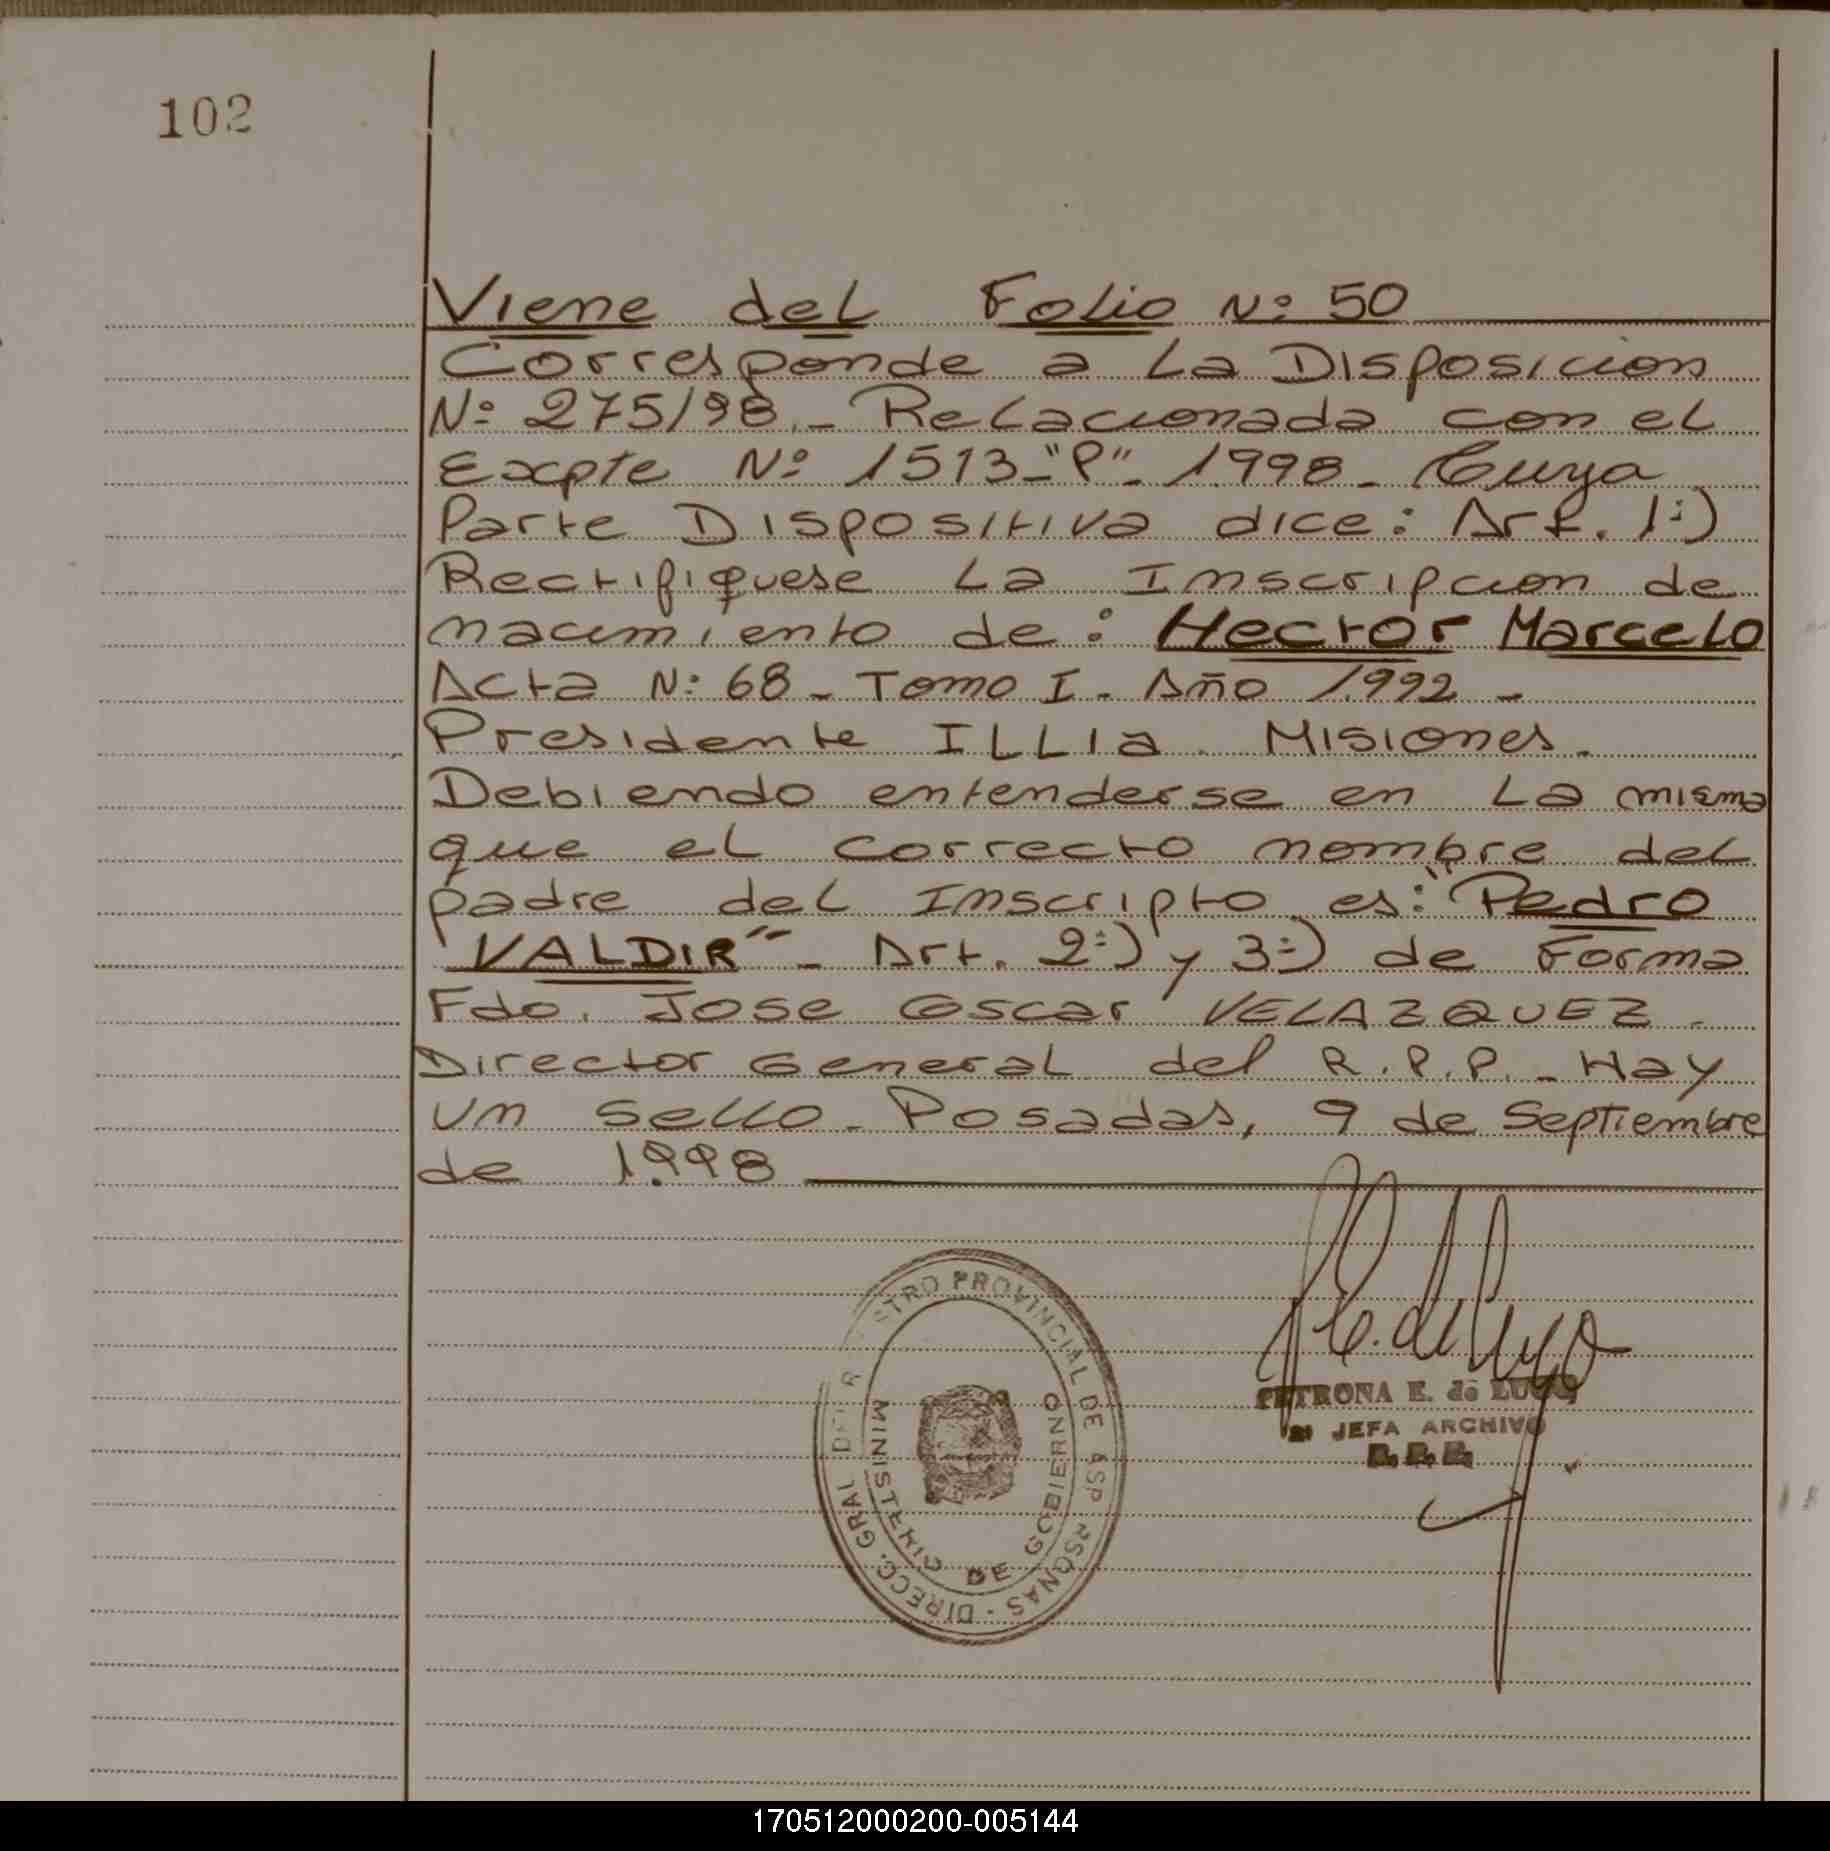 102
Viene del Folio Nº 50
Corresponde a La Disposicion
Nº 275/98.- Relacionada con el
Expte Nº 1513-"P"- 1998- Cuya
Parte Dispositiva dice: Art. 1º)
Rectifiquese La Inscripcion de
nacimiento de: Hector Marcelo
Acta Nº 68- Tomo I- Año 1992-
Presidente ILLia. Misiones.
Debiendo entenderse en La misma
que el correcto nombre del
padre del Inscripto es: "Pedro
VALDIR"- Art. 2º) y 3º) de Forma
Fdo. Jose Oscar VELAZQUEZ.
Director General del R.P.P.- Hay
un sello- Posadas, 9 de Septiembre
de 1998
PETRONA E. de LUGO
2º JEFA ARCHIVO
R. P. P.
STRO PROVINCIAL DE
DIRECC. GRAL
MINISTERIO DE GOBIERNO
170512000200-005144